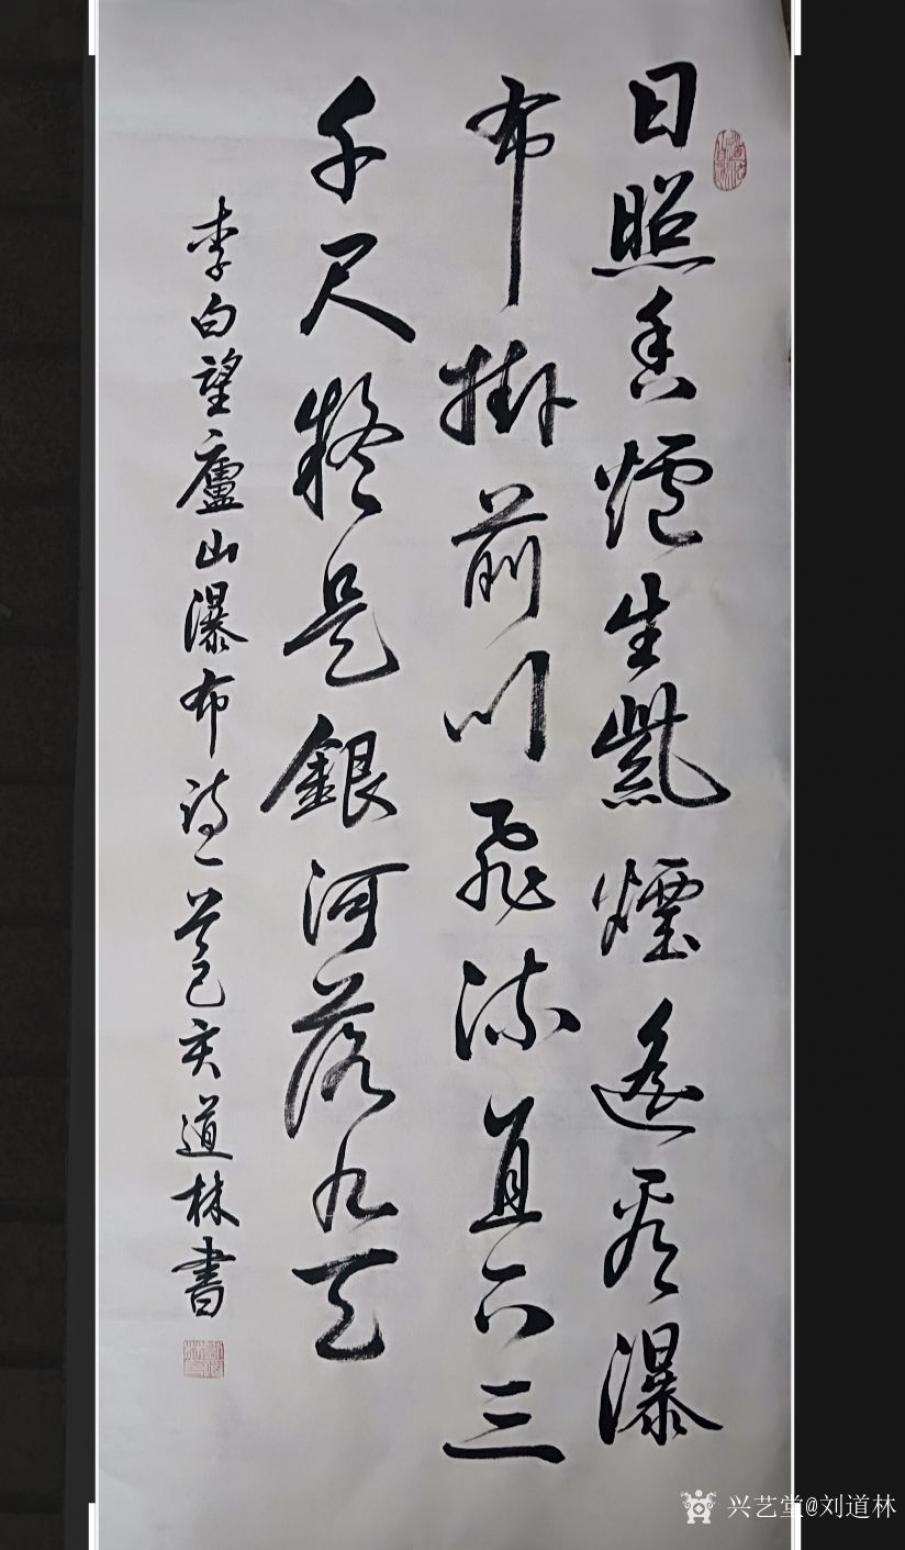 日照香爐生紫煙遙看瀑
布掛前川飛流直下三
千尺疑是銀河落九天
李白望廬山瀑布诗一首己亥道林書
兴艺堂@刘道林